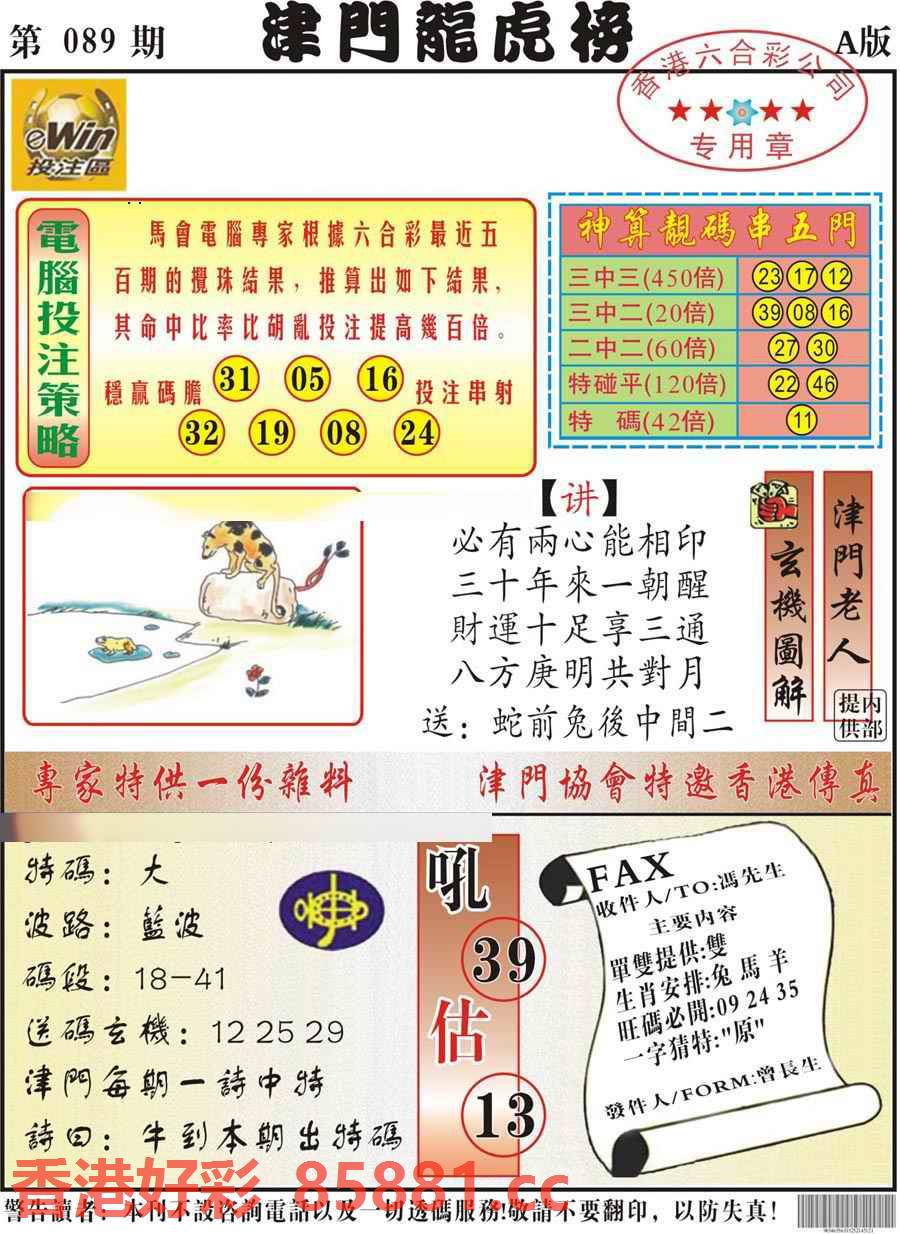 第 089 期
津門龍虎榜
A版
香港六合彩公司
专用章
eWin
投注區
電腦投注策略
馬會電腦專家根據六合彩最近五
百期的攪珠結果，推算出如下結果，
其命中比率比胡亂投注提高幾百倍。
穩贏碼膽 31 05 16 投注串射
32 19 08 24
神算靚碼串五門
三中三(450倍) 23 17 12
三中二(20倍) 39 08 16
二中二(60倍) 27 30
特碰平(120倍) 22 46
特 碼(42倍) 11
【讲】
必有兩心能相印
三十年來一朝醒
財運十足享三通
八方庚明共對月
送：蛇前兔後中間二
玄機圖解
津門老人
内部提供
專家特供一份雜料
津門協會特邀香港傳真
特碼：大
波路：藍波
碼段：18-41
送碼玄機：12 25 29
津門每期一詩中特
詩曰：牛到本期出特碼
吼
39
估
13
FAX
收件人/TO:馮先生
主要内容
單雙提供:雙
生肖安排:兔 馬 羊
旺碼必開:09 24 35
一字猜特:"原"
發件人/FORM:曾長生
香港好彩 85881.cc
警告讀者：本刊不設咨詢電話以及一切透碼服務!敬請不要翻印，以防失真!